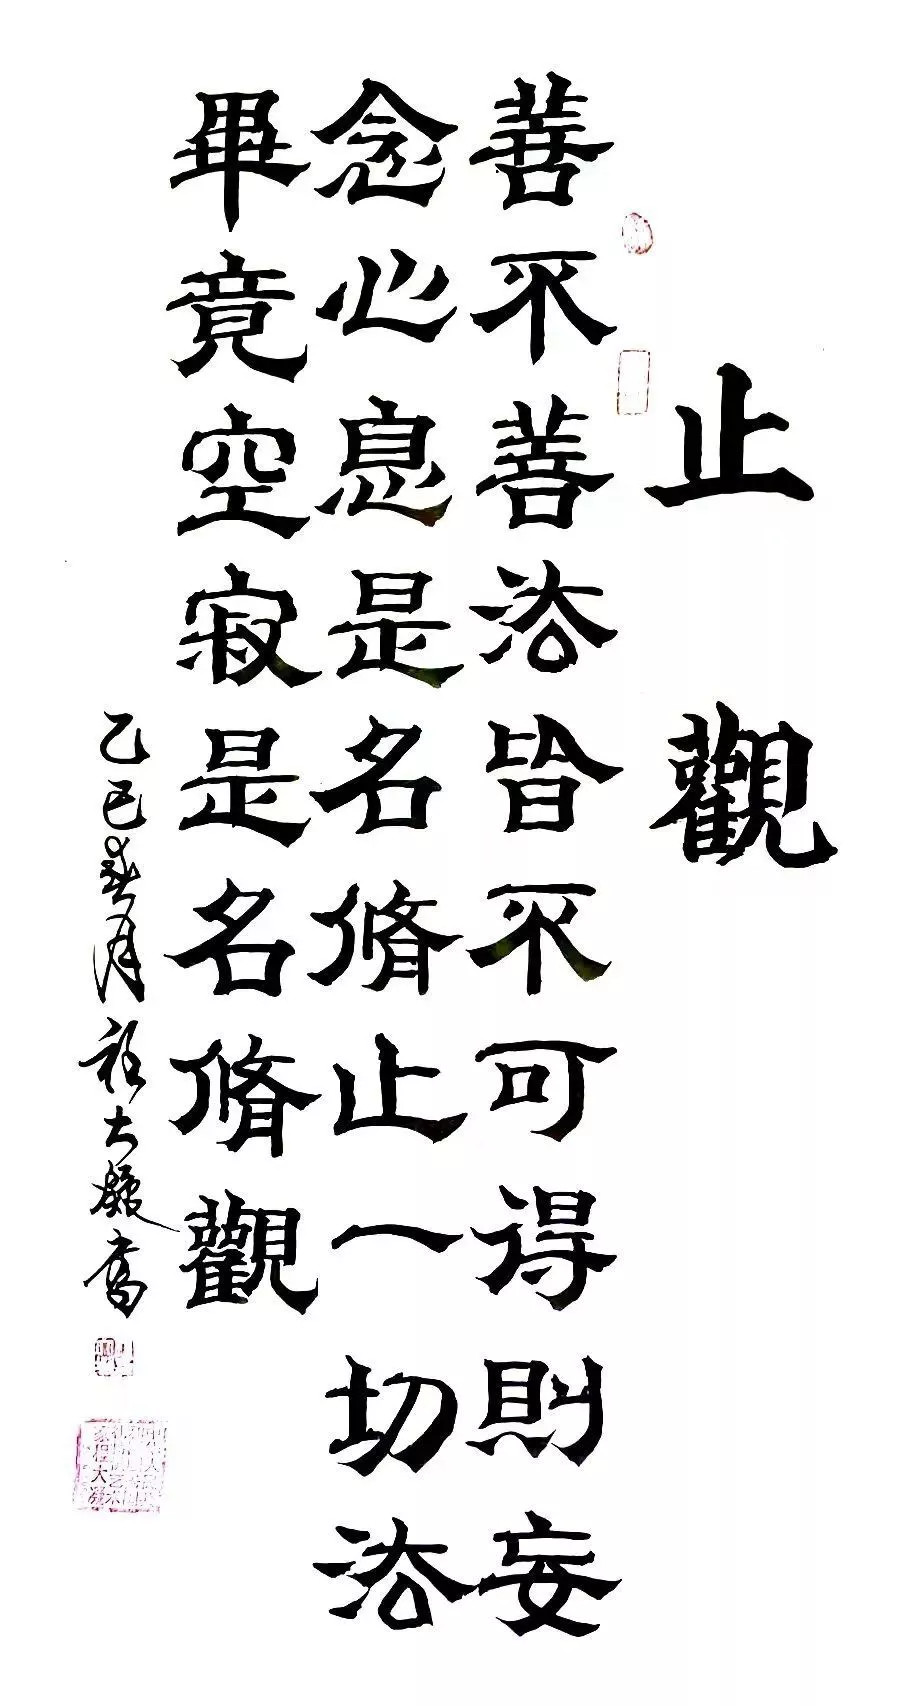 止觀
善不善法皆不可得則妄
念心息是名脩止一切法
畢竟空寂是名脩觀
乙巳春月程大凝書